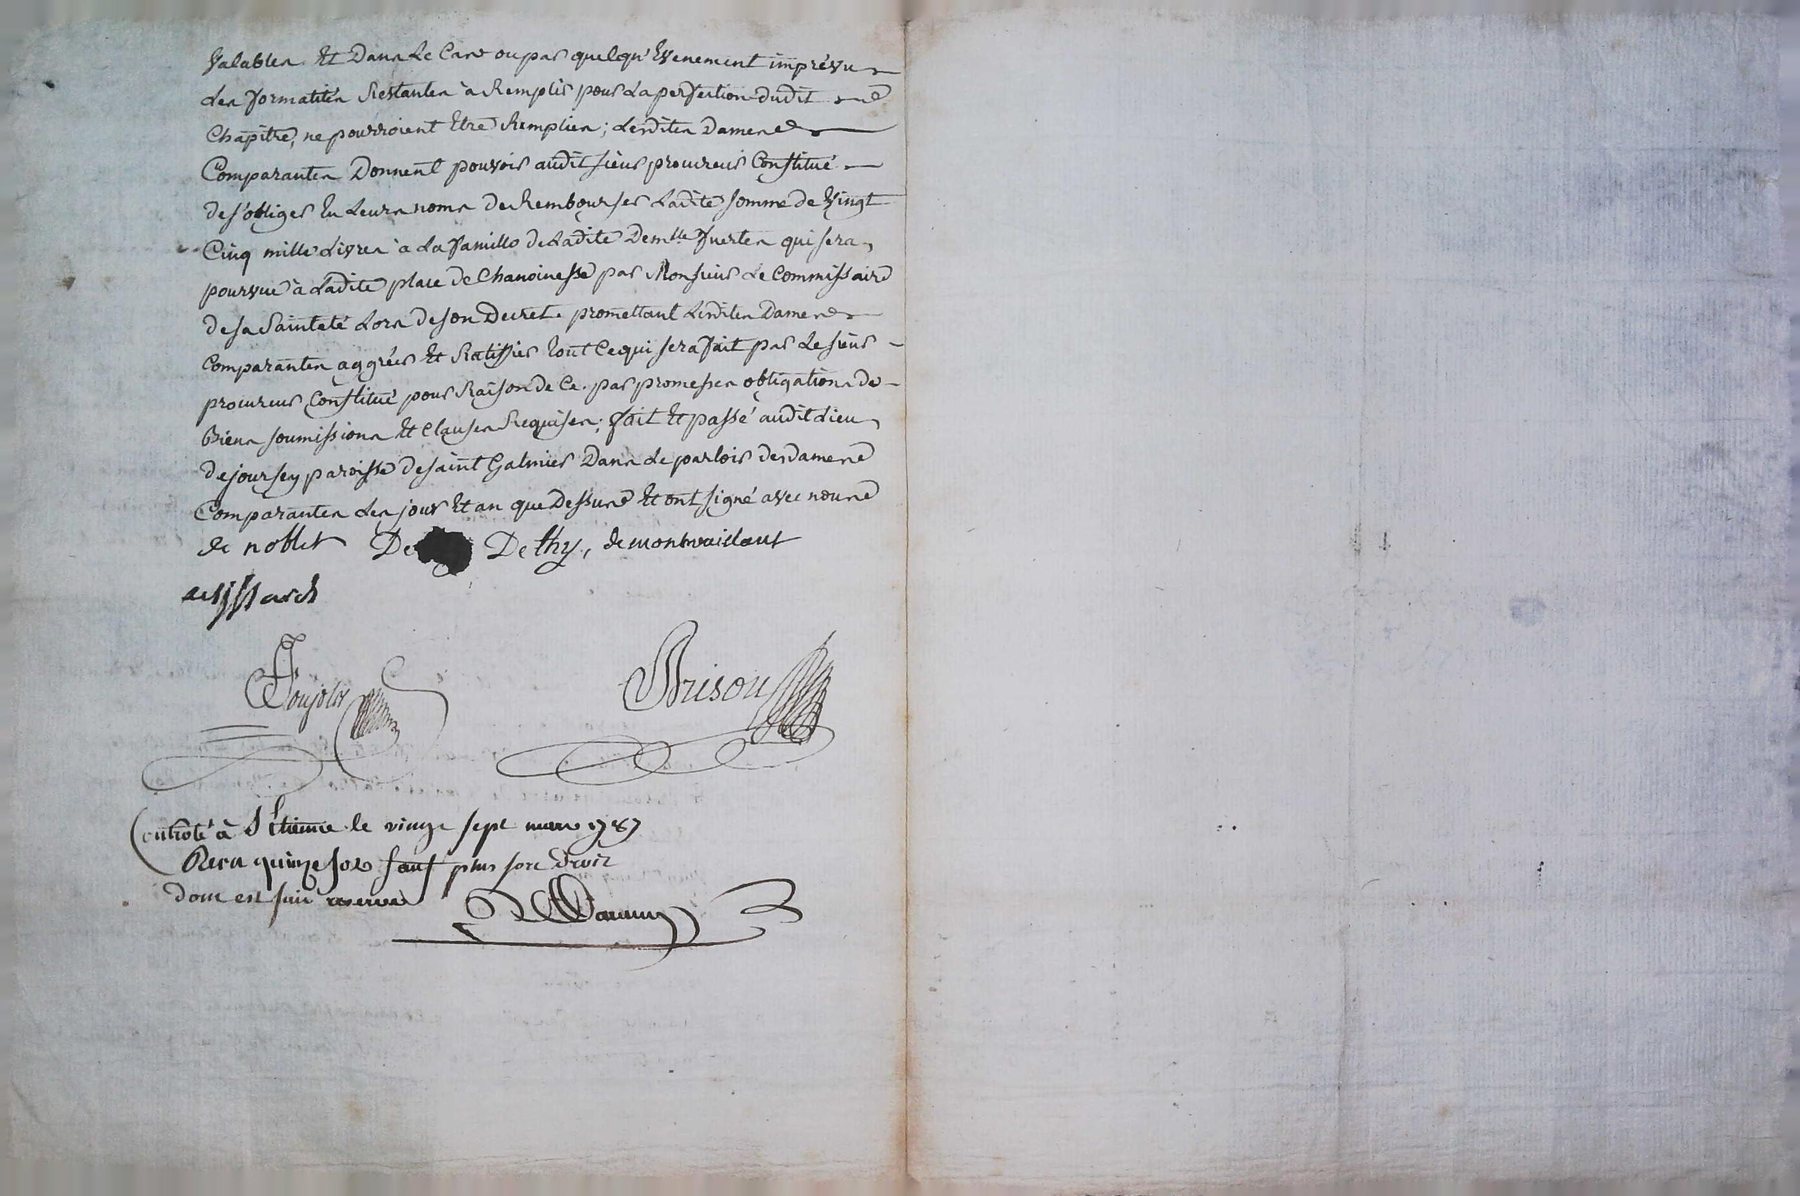 Valables. Et Dans Le Cas ou par quelqu'Evenement imprévu
Les formalités Restantes à Remplir pour La perfection dudit
Chapitre, ne pourroient Etre Remplies; Lesdites Dames
Comparantes Donnent pouvoir audit sieur procureur Constitué
de s'obliger En Leurs noms de Rembourser Ladite somme de Vingt
Cinq mille Livres à La famille de Ladite Demlle Fuertes qui sera
pourvue à Ladite place de Chanoinesse par Monsieur Le Commissaire
de sa Sainteté Lors de son Decret. promettant Lesdites Dames
Comparantes aggréer Et Ratiffier tout Ce qui sera fait par Le sieur
procureur Constitué pour Raison de Ce. par promesses obligations de
Biens soumissions Et Clauses Requises; fait Et passé audit Lieu
de joursey paroisse de saint Galmier Dans Le parloir desdames
Comparantes Les jour Et an que Dessus Et ont signé avec nous
de noblet De Dethy, de montvaillant

Poujolas Brison
Controlé à St Etienne le vingt sept mars 1787
Recu quinze sols sauf plus fort droit
dont est fait reserve